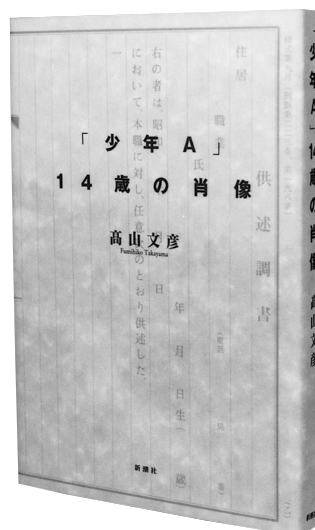 「少年A」
14歳の肖像
髙山文彦
Fumihiko Takayama
新潮社
供述調書
住居
職業
氏
年 月 日生( 歳)
右の者は、昭和 月 日
において、本職に対し、任意 のとおり供述した。
一
「少年A」14歳の肖像
髙山文彦
新潮社